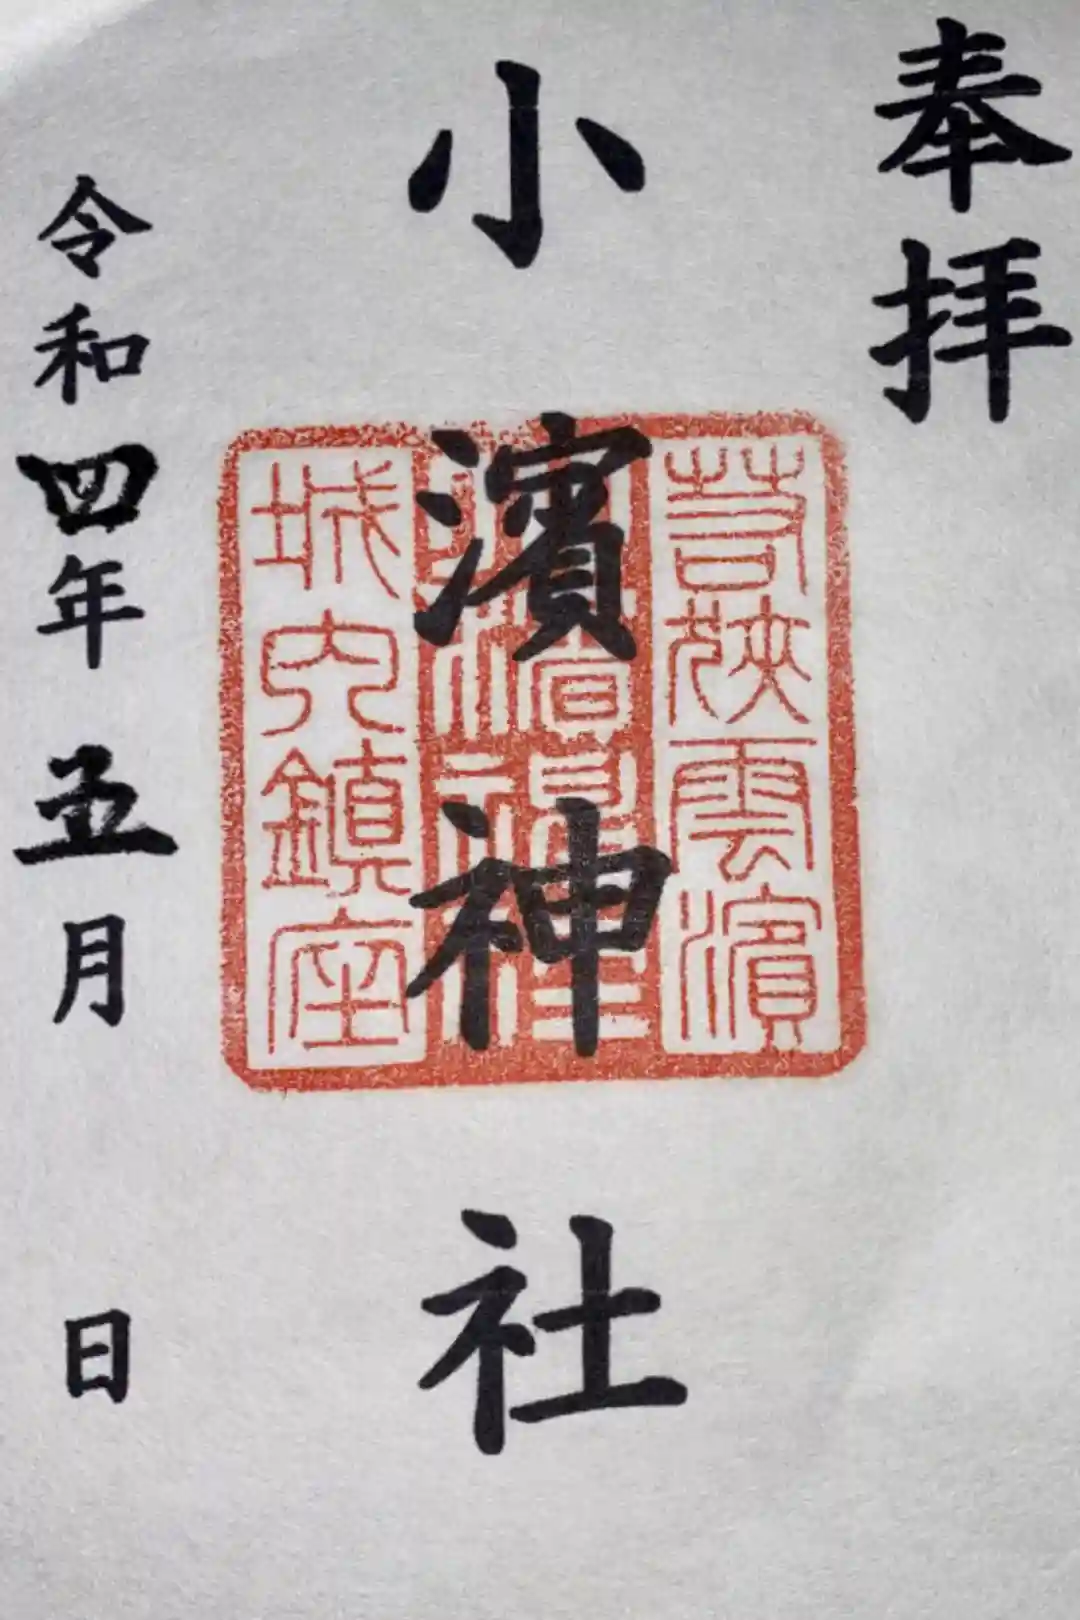 奉拝
小濱神社
若狹雲濱
城内鎮座
令和四年五月 日